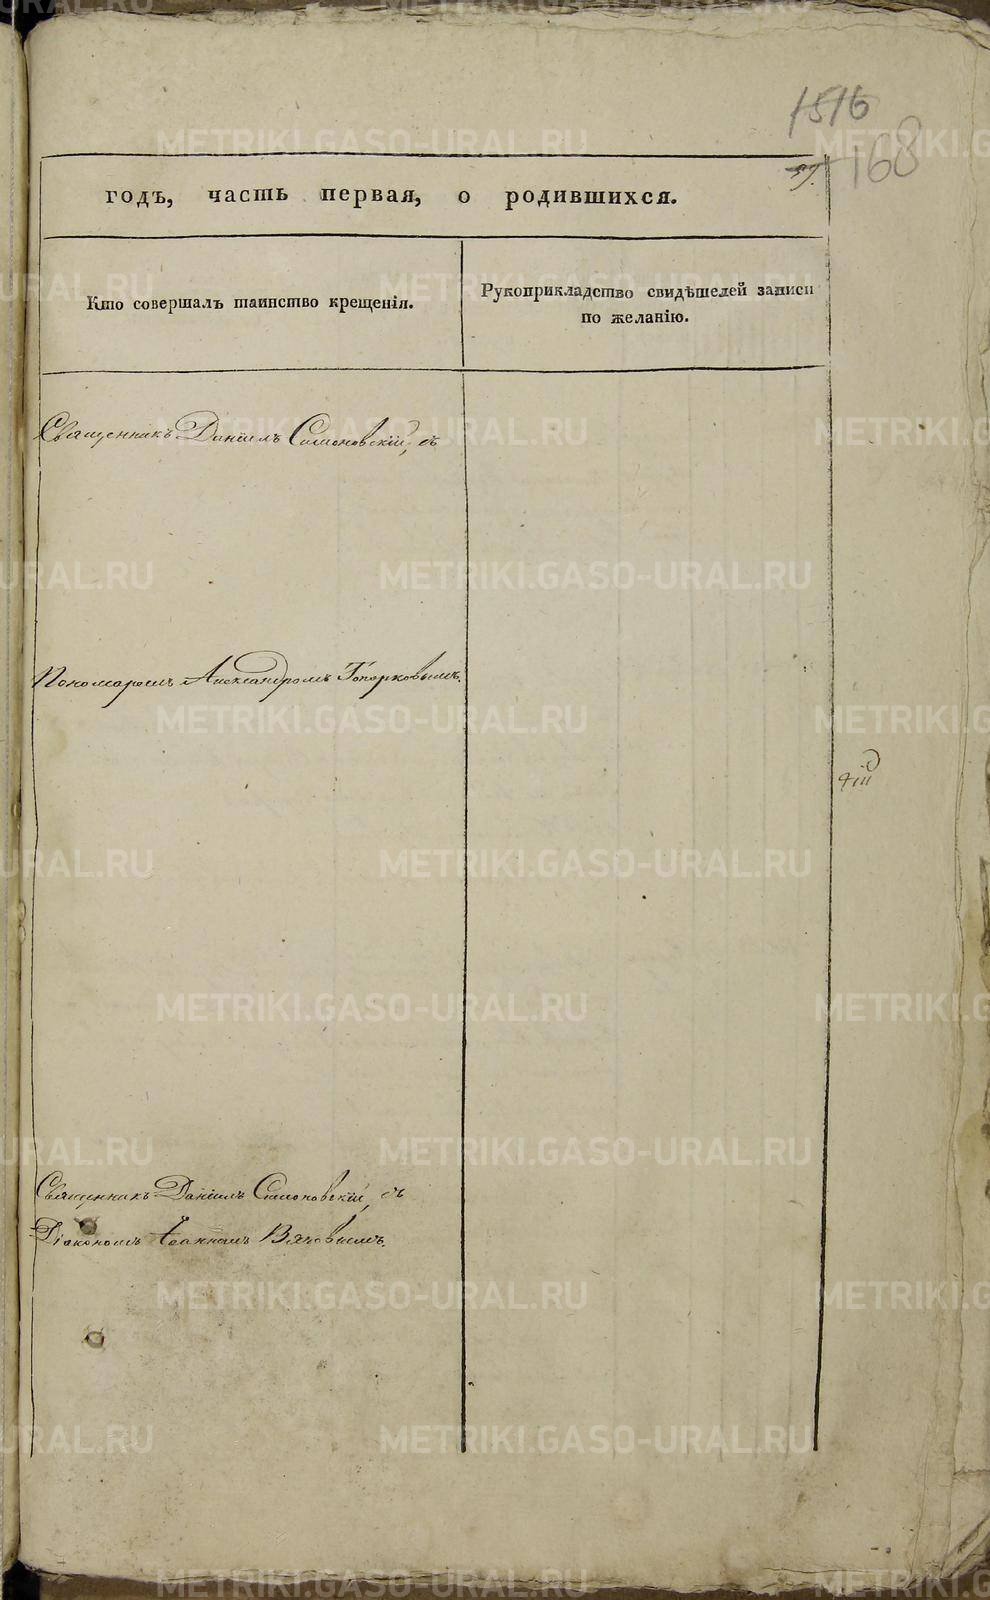 1516
168
годъ, часть первая, о родившихся.
Кто совершалъ таинство крещенія.
Рукоприкладство свидѣтелей записи
по желанію.
Священникъ Даніилъ Симоновскій, съ
Пономаремъ Александромъ Топорковымъ.
Священникъ Даніилъ Симоновскій, съ
Діакономъ Іоанномъ Вяховымъ.
METRIKI.GASO-URAL.RU